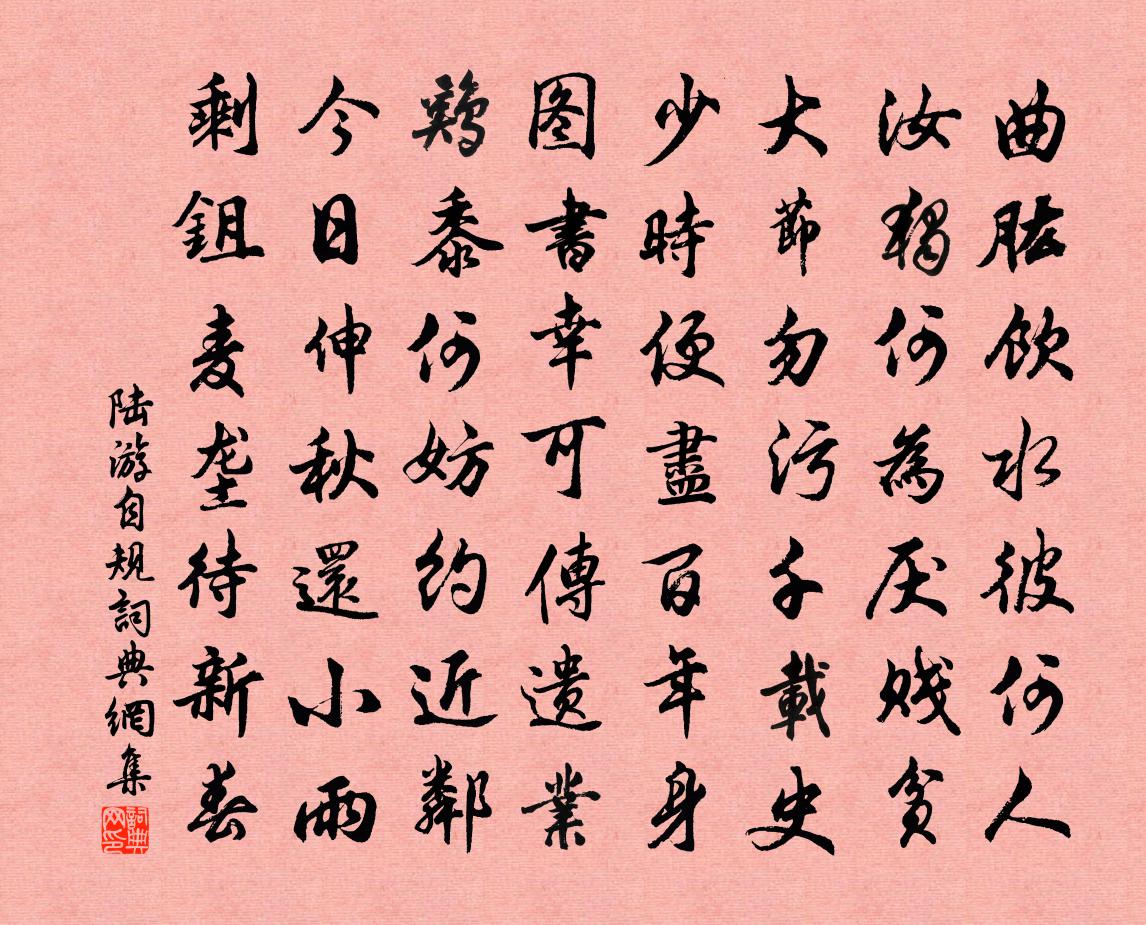 曲肱飲水彼何人
汝獨何為厌賤貧
大節勿污千載史
少時便盡百年身
图書幸可傳遺業
鷄黍何妨約近鄰
今日伸秋還小雨
剩鉏麦垄待新春
陆游自规詞典網集
詞典网印